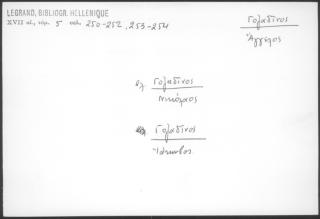 LEGRAND, BIBLIOGR. HELLENIQUE
XVII αἰ., τόμ. 5 σελ. 250-252, 253-254
Γολαδῖνος
Ἄγγελος
βλ. Γολαδῖνος
Νικόλαος
Γολαδῖνος
Ἰάκωβος